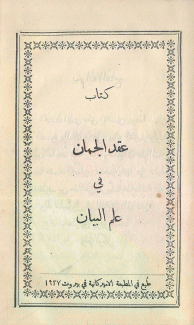 كتاب
عقد الجمان
في
علم البيان
طبع في المطبعة الاميركانية في بيروت ١٩٢٧